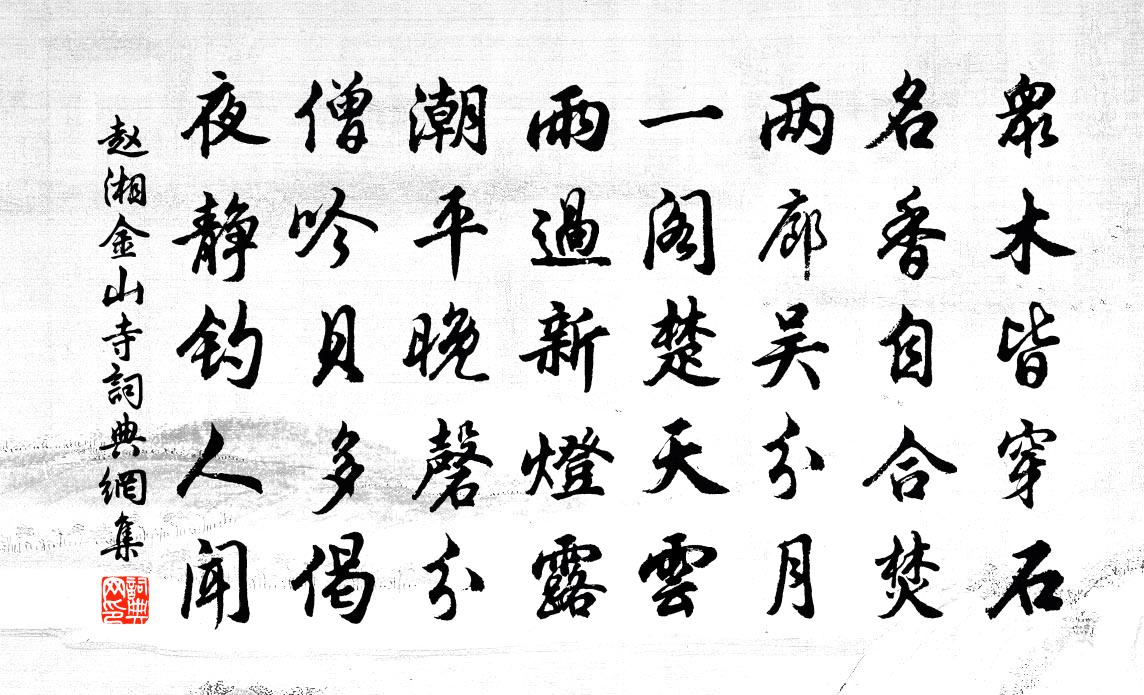 衆木皆穿石
名香自合焚
两廊吴分月
一阁楚天雲
雨過新燈露
潮平晚磬分
僧吟貝多偈
夜静钓人闻
赵湘金山寺詞典網集
詞典网印